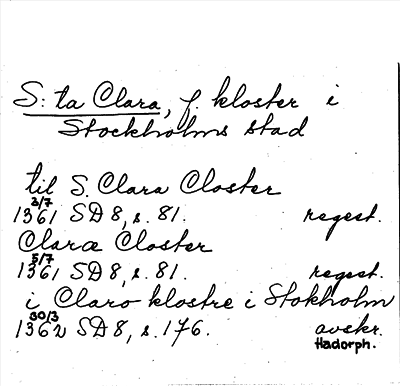 S:ta Clara, f. kloster i
Stockholms stad
til S. Clara Closter
2/7
1361 SD8, s. 81. regest.
Claræ Closter
5/7
1361 SD8, s. 81. regest.
i Claro klostre i Stokholm
30/3
1362 SD8, s. 176. avskr.
Hadorph.